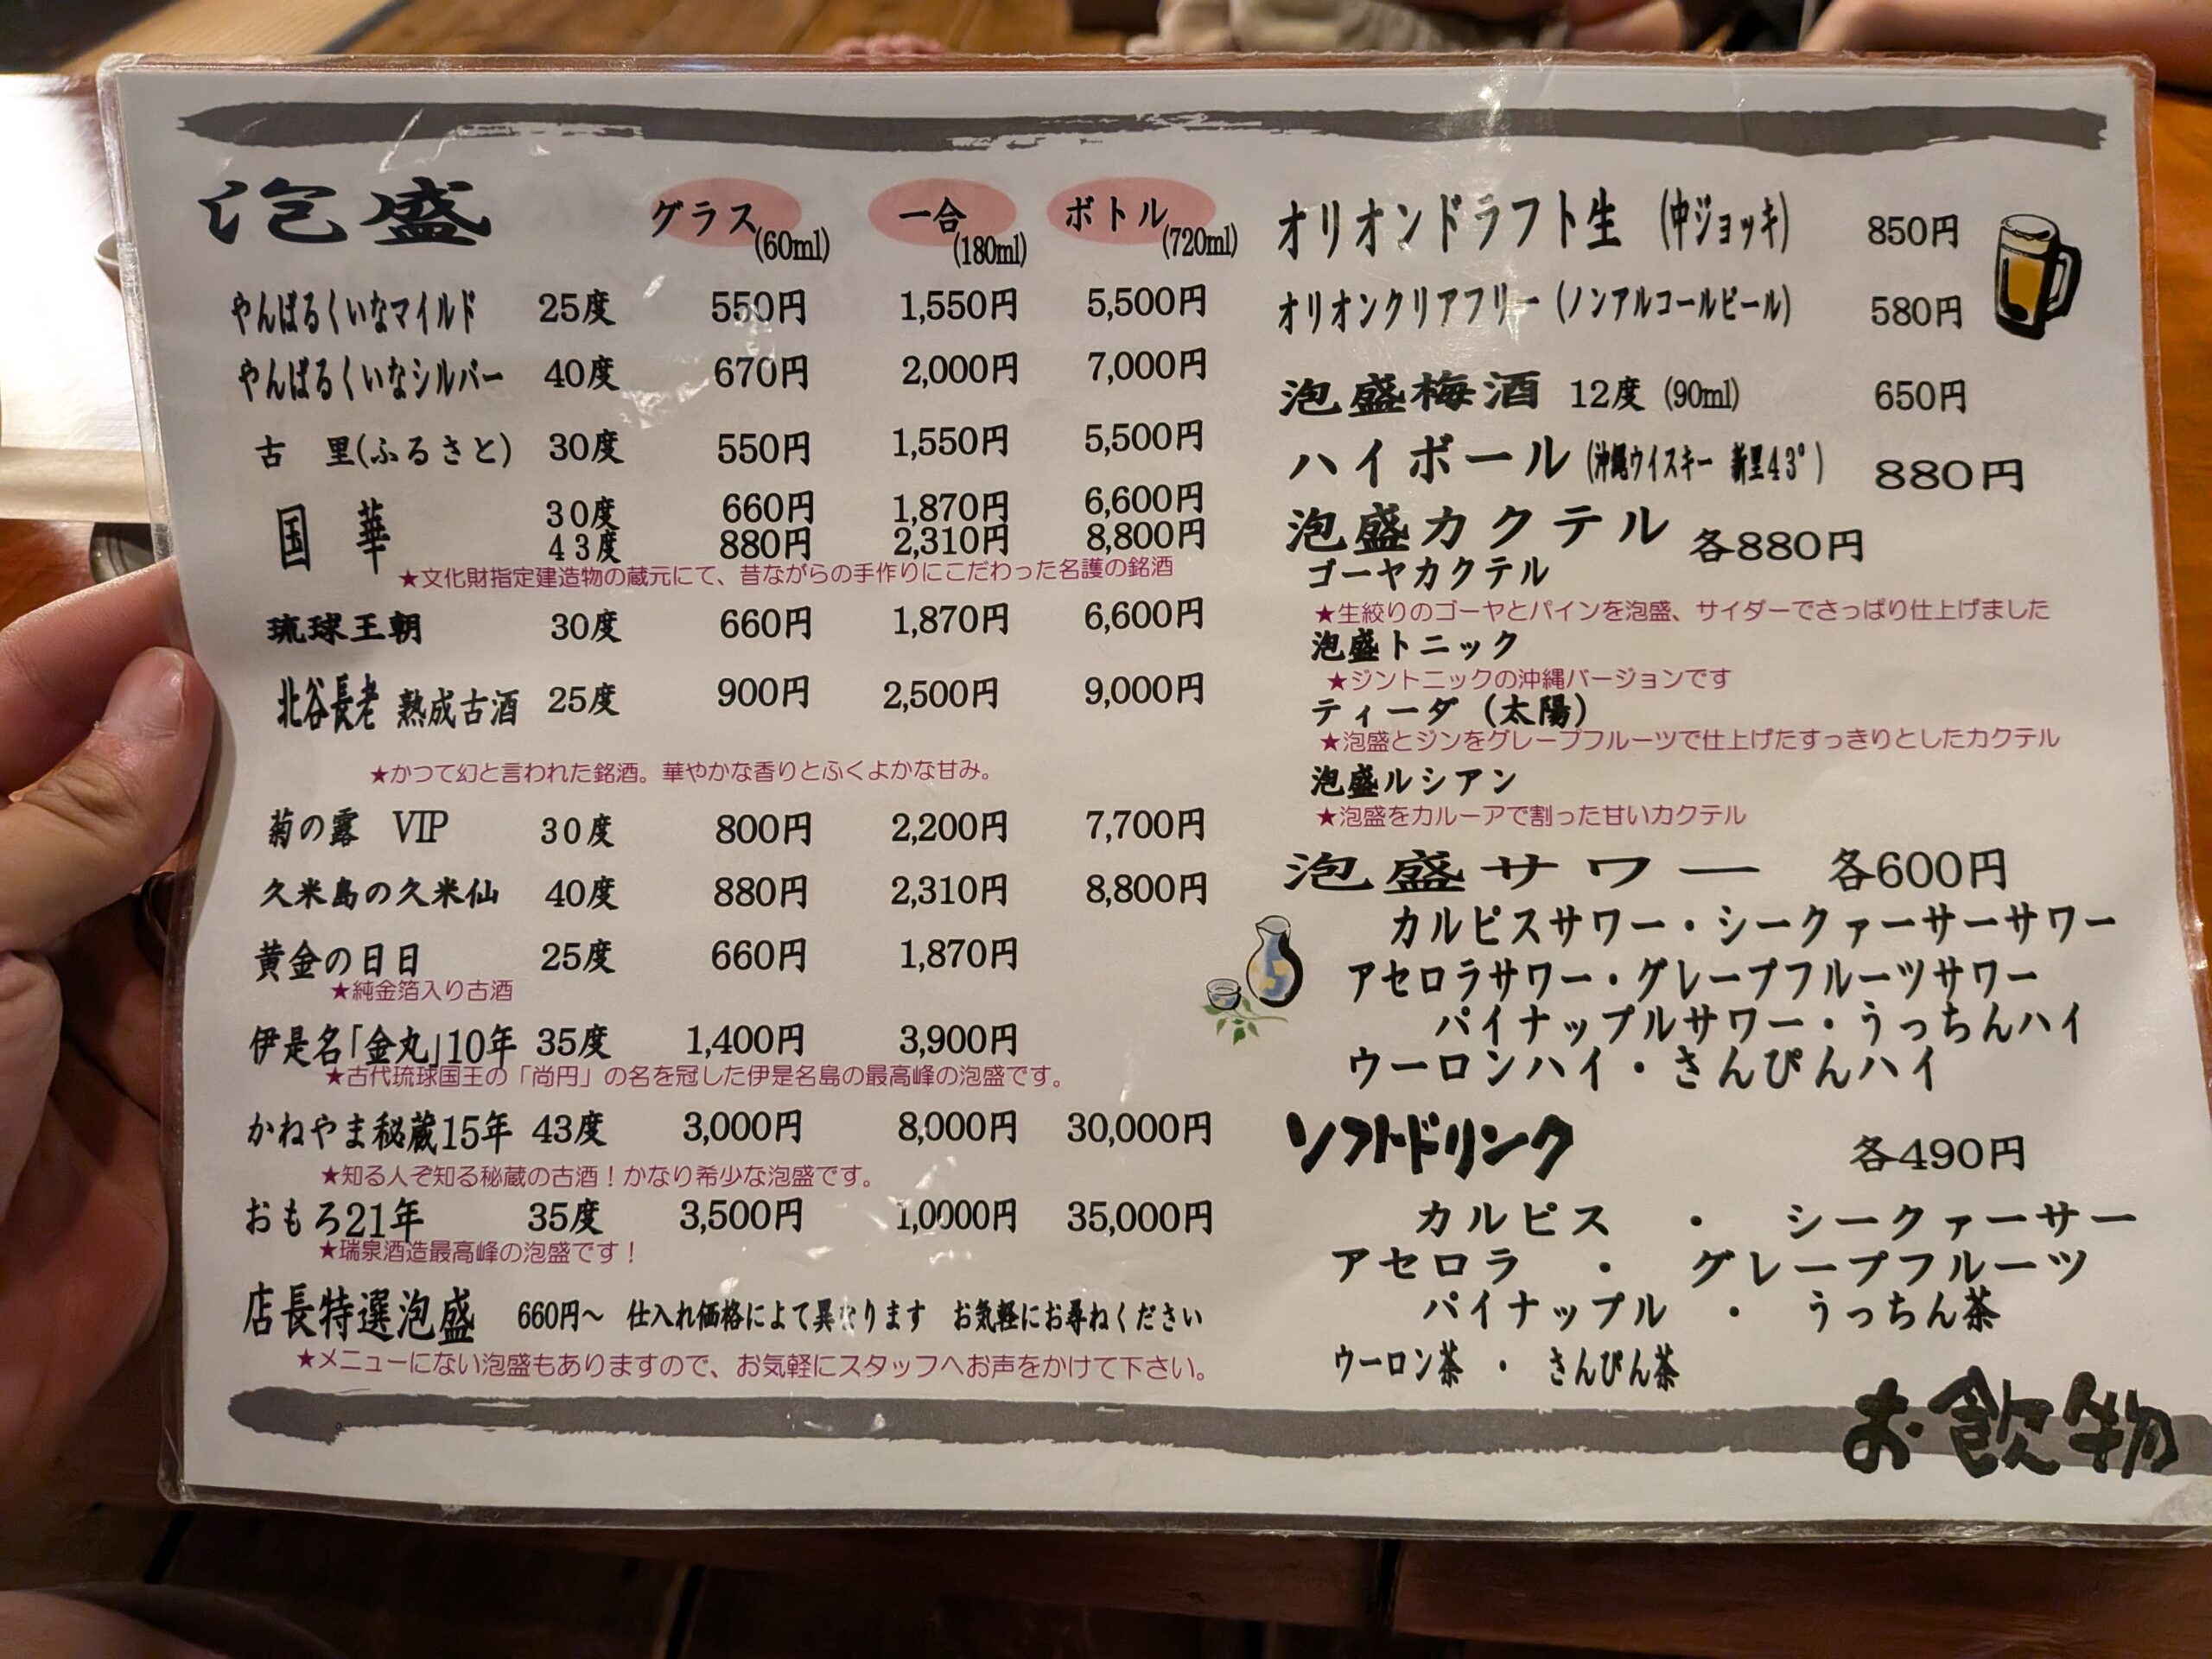 泡盛 グラス(60ml) 一合(180ml) ボトル(720ml)
やんばるくいなマイルド 25度 550円 1,550円 5,500円
やんばるくいなシルバー 40度 670円 2,000円 7,000円
古 里(ふるさと) 30度 550円 1,550円 5,500円
国 華 30度 660円 1,870円 6,600円
43度 880円 2,310円 8,800円
★文化財指定建造物の蔵元にて、昔ながらの手作りにこだわった名護の銘酒
琉球王朝 30度 660円 1,870円 6,600円
北谷長老 熟成古酒 25度 900円 2,500円 9,000円
★かつて幻と言われた銘酒。華やかな香りとふくよかな甘み。
菊の露 VIP 30度 800円 2,200円 7,700円
久米島の久米仙 40度 880円 2,310円 8,800円
黄金の日日 25度 660円 1,870円
★純金箔入り古酒
伊是名「金丸」10年 35度 1,400円 3,900円
★古代琉球国王の「尚円」の名を冠した伊是名島の最高峰の泡盛です。
かねやま秘蔵15年 43度 3,000円 8,000円 30,000円
★知る人ぞ知る秘蔵の古酒！かなり希少な泡盛です。
おもろ21年 35度 3,500円 1,0000円 35,000円
★瑞泉酒造最高峰の泡盛です！
店長特選泡盛 660円～ 仕入れ価格によて異なります お気軽にお尋ねください
★メニューにない泡盛もありますので、お気軽にスタッフへお声をかけて下さい。
オリオンドラフト生 (中ジョッキ) 850円
オリオンクリアフリー (ノンアルコールビール) 580円
泡盛梅酒 12度 (90ml) 650円
ハイボール (沖縄ウイスキー 新里43°) 880円
泡盛カクテル 各880円
ゴーヤカクテル
★生絞りのゴーヤとパインを泡盛、サイダーでさっぱり仕上げました
泡盛トニック
★ジントニックの沖縄バージョンです
ティーダ (太陽)
★泡盛とジンをグレープフルーツで仕上げたすっきりとしたカクテル
泡盛ルシアン
★泡盛をカルーアで割った甘いカクテル
泡盛サワー 各600円
カルピスサワー・シークァーサーサワー
アセロラサワー・グレープフルーツサワー
パイナップルサワー・うっちんハイ
ウーロンハイ・さんぴんハイ
ソフトドリンク 各490円
カルピス ・ シークァーサー
アセロラ ・ グレープフルーツ
パイナップル ・ うっちん茶
ウーロン茶 ・ さんぴん茶
お飲物